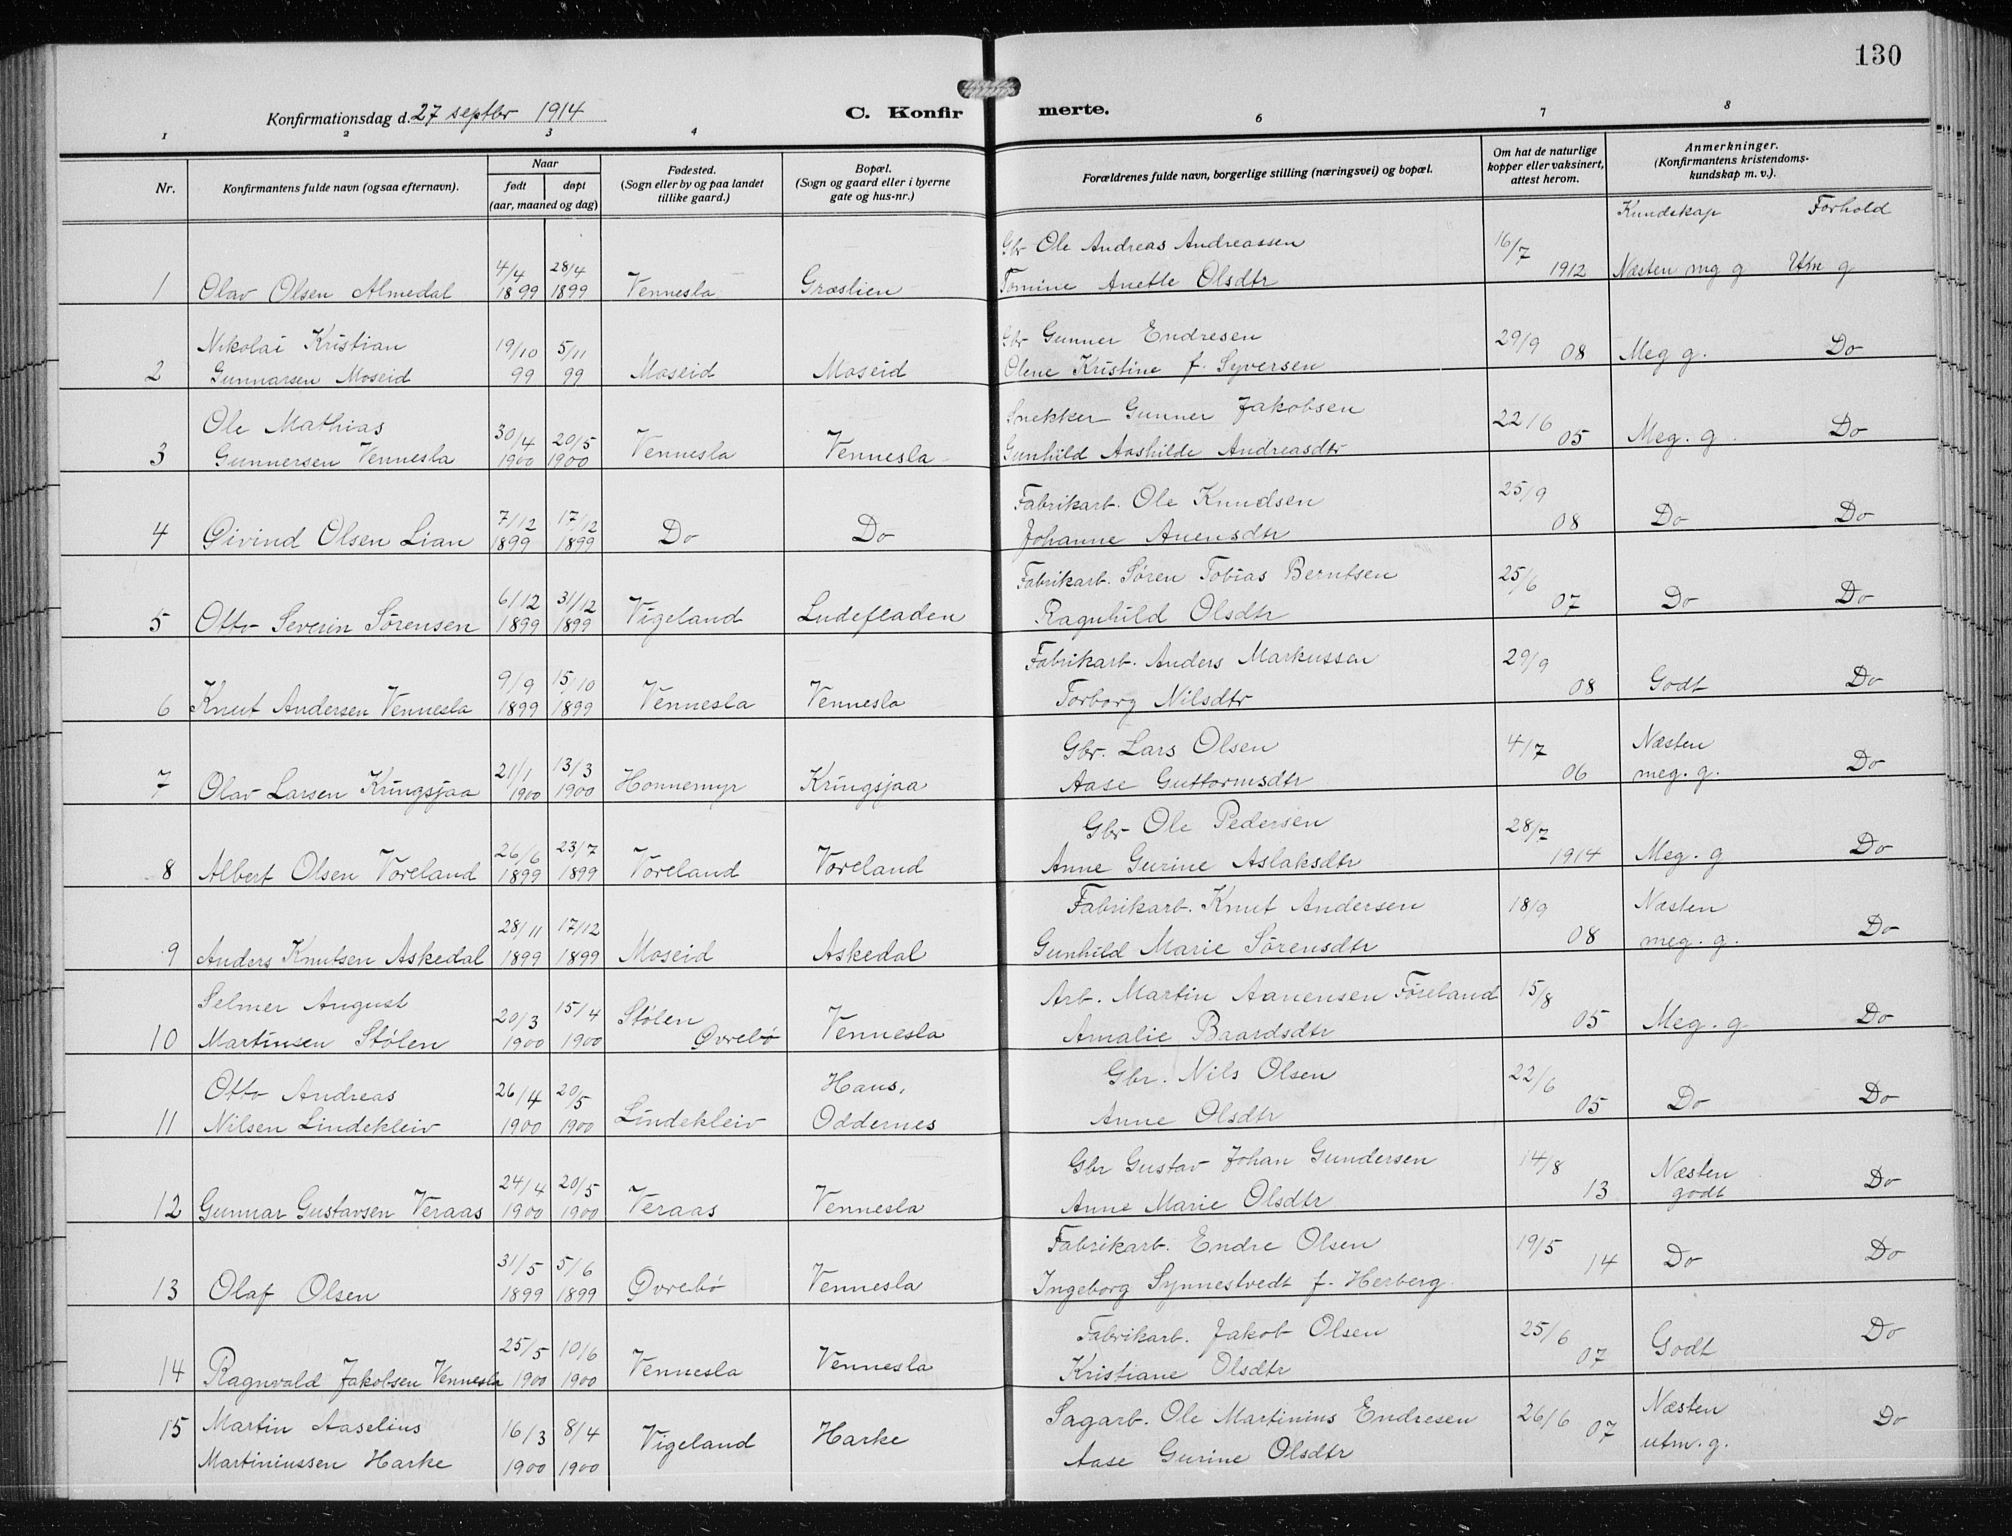 130
Konfirmationsdag d. 27 septbr 1914
C. Konfirmerte.
1 2 3 4 5 6 7 8
Nr.
Konfirmantens fulde navn (ogsaa efternavn).
Naar
født døpt
(aar, maaned og dag)
Fødested.
(Sogn eller by og paa landet
tillike gaard.)
Bopæl.
(Sogn og gaard eller i byerne
gate og hus-nr.)
Forældrenes fulde navn, borgerlige stilling (næringsvei) og bopæl.
Om hat de naturlige
kopper eller vaksinert,
attest herom.
Anmerkninger.
(Konfirmantens kristendoms-
kundskap m. v.).
Kundskap Forhold
Gbr Ole Andreas Andreassen 16/7
4/4 28/4
1 Olav Olsen Almedal 1899 1899 Vennesla Græslien Tomine Anette Olsdtr 1912 Næsten mg g Utm g
Nikolai Kristian 19/10 5/11 Gbr Gunner Endresen 29/9
2 Gunnarsen Moseid 99 99 Moseid Moseid Olene Kristine f. Syversen 08 Meg g. Do
Ole Mathias 30/4 20/5 Snekker Gunner Jakobsen 22/6
3 Gunnersen Vennesla 1900 1900 Vennesla Vennesla Gunhild Aashilde Andreasdtr 05 Meg. g Do
7/12 17/12 Fabrikarb. Ole Knudsen 25/9
4 Øivind Olsen Lian 1899 1899 Do Do Johanne Anensdtr 08 Do Do
6/12 31/12 Fabrikarb. Søren Tobias Berntsen 25/6
5 Otto Severin Sørensen 1899 1899 Vigeland Ludefladen Ragnhild Olsdtr 07 Do Do
9/9 15/10 Fabrikarb. Anders Markussen 29/9
6 Knut Andersen Vennesla 1899 1899 Vennesla Vennesla Torborg Nilsdtr 08 Godt Do
21/1 13/3 Gbr. Lars Olsen 4/7 Næsten
7 Olav Larsen Kringsjaa 1900 1900 Honnemyr Kringsjaa Aase Guttormsdtr 06 meg. g. Do
26/6 23/7 Gbr Ole Pedersen 28/7
8 Albert Olsen Voreland 1899 1899 Voreland Voreland Anne Gurine Aslaksdtr 1914 Meg. g Do
28/11 17/12 Fabrikarb. Knut Andersen 18/9 Næsten
9 Anders Knutsen Askedal 1899 1899 Moseid Askedal Gunhild Marie Sørensdtr 08 meg. g. Do
Selmer August 20/3 15/4 Stølen Arb. Martin Aanensen Føreland 15/8
10 Martinsen Stølen 1900 1900 Øvrebø Vennesla Amalie Baardsdtr 05 Meg. g Do
Otto Andreas 26/4 20/5 Haus, Gbr. Nils Olsen 22/6
11 Nilsen Lindekleiv 1900 1900 Lindekleiv Oddernes Anne Olsdtr 05 Do Do
24/4 20/5 Gbr Gustav Johan Gundersen 14/8 Næsten
12 Gunnar Gustavsen Veraas 1900 1900 Veraas Vennesla Anne Marie Olsdtr 13 godt Do
31/5 5/6 Fabrikarb. Endre Olsen 19/5
13 Olaf Olsen 1899 1899 Øvrebø Vennesla Ingeborg Synnestvedt f. Herberg 14 Do Do
25/5 10/6 Fabrikarb. Jakob Olsen 25/6
14 Ragnvald Jakobsen Vennesla 1900 1900 Vennesla Vennesla Kristiane Olsdtr 07 Godt Do
15 Martin Aaselius 16/3 8/4 Vigeland Harke Sagarb. Ole Martinius Endresen 26/6 07 Næsten Do
Martiniussen Harke 1900 1900 Aase Gurine Olsdtr utm. g.